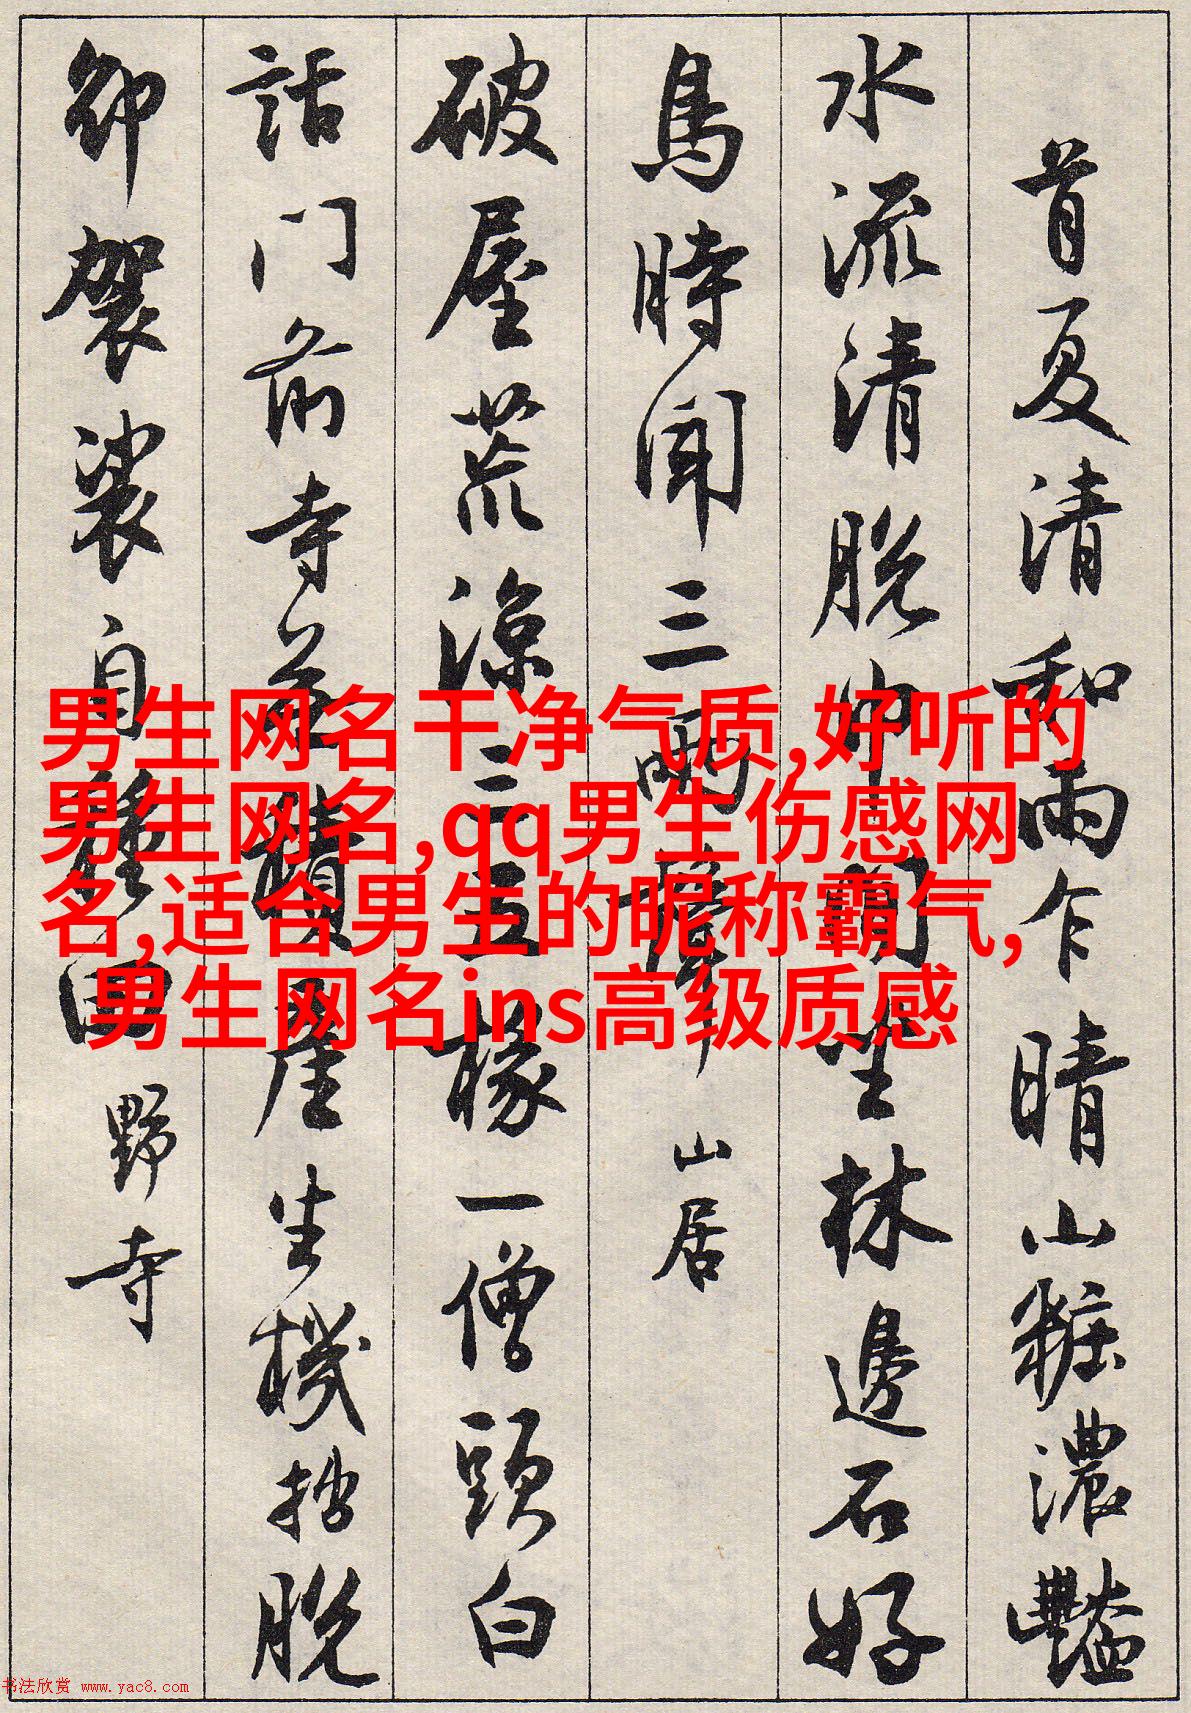 首夏清和雨乍晴山粧濃豔
水流清脫巾閒坐林邊石好
鳥時聞三兩聲 山居
破屋荒涼三五椽一僧頭白
話门前寺無積產生機拙脫
卻袈裟自種田 野寺
男生网名干净气质,好听的
男生网名,qq男生伤感网
名,适合男生的昵称霸气,
男生网名ins高级质感
书法欣赏 www.yac8.com